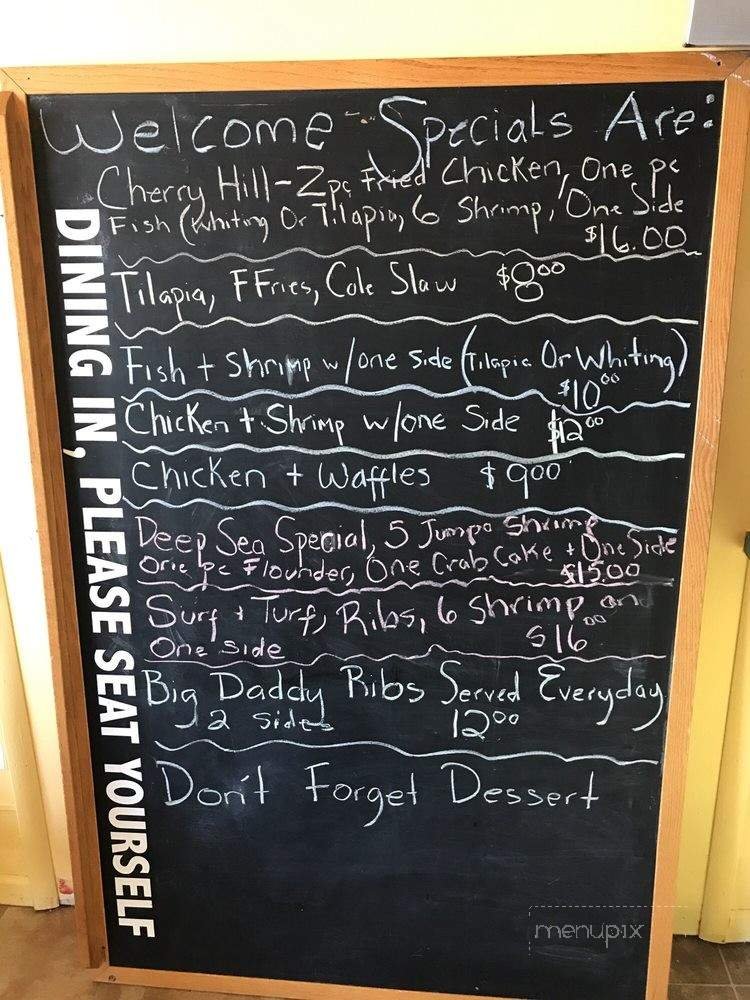 Welcome - Specials Are:
Cherry Hill - 2pc Fried Chicken, One pc
Fish (Whiting Or Tilapia, 6 Shrimp, One Side
$16.00
Tilapia, FFries, Cole Slaw $8.00
Fish + Shrimp w/one side (Tilapia Or Whiting)
$10.00
Chicken + Shrimp w/one Side $12.00
Chicken + Waffles $9.00
Deep Sea Special, 5 Jumpo Shrimp
One pc Flounder, One Crab Cake + One Side
$15.00
Surf + Turf, Ribs, 6 Shrimp and
One side $16.00
Big Daddy Ribs Served Everyday
2 sides 12.00
Don't Forget Dessert
DINING IN, PLEASE SEAT YOURSELF
menupix